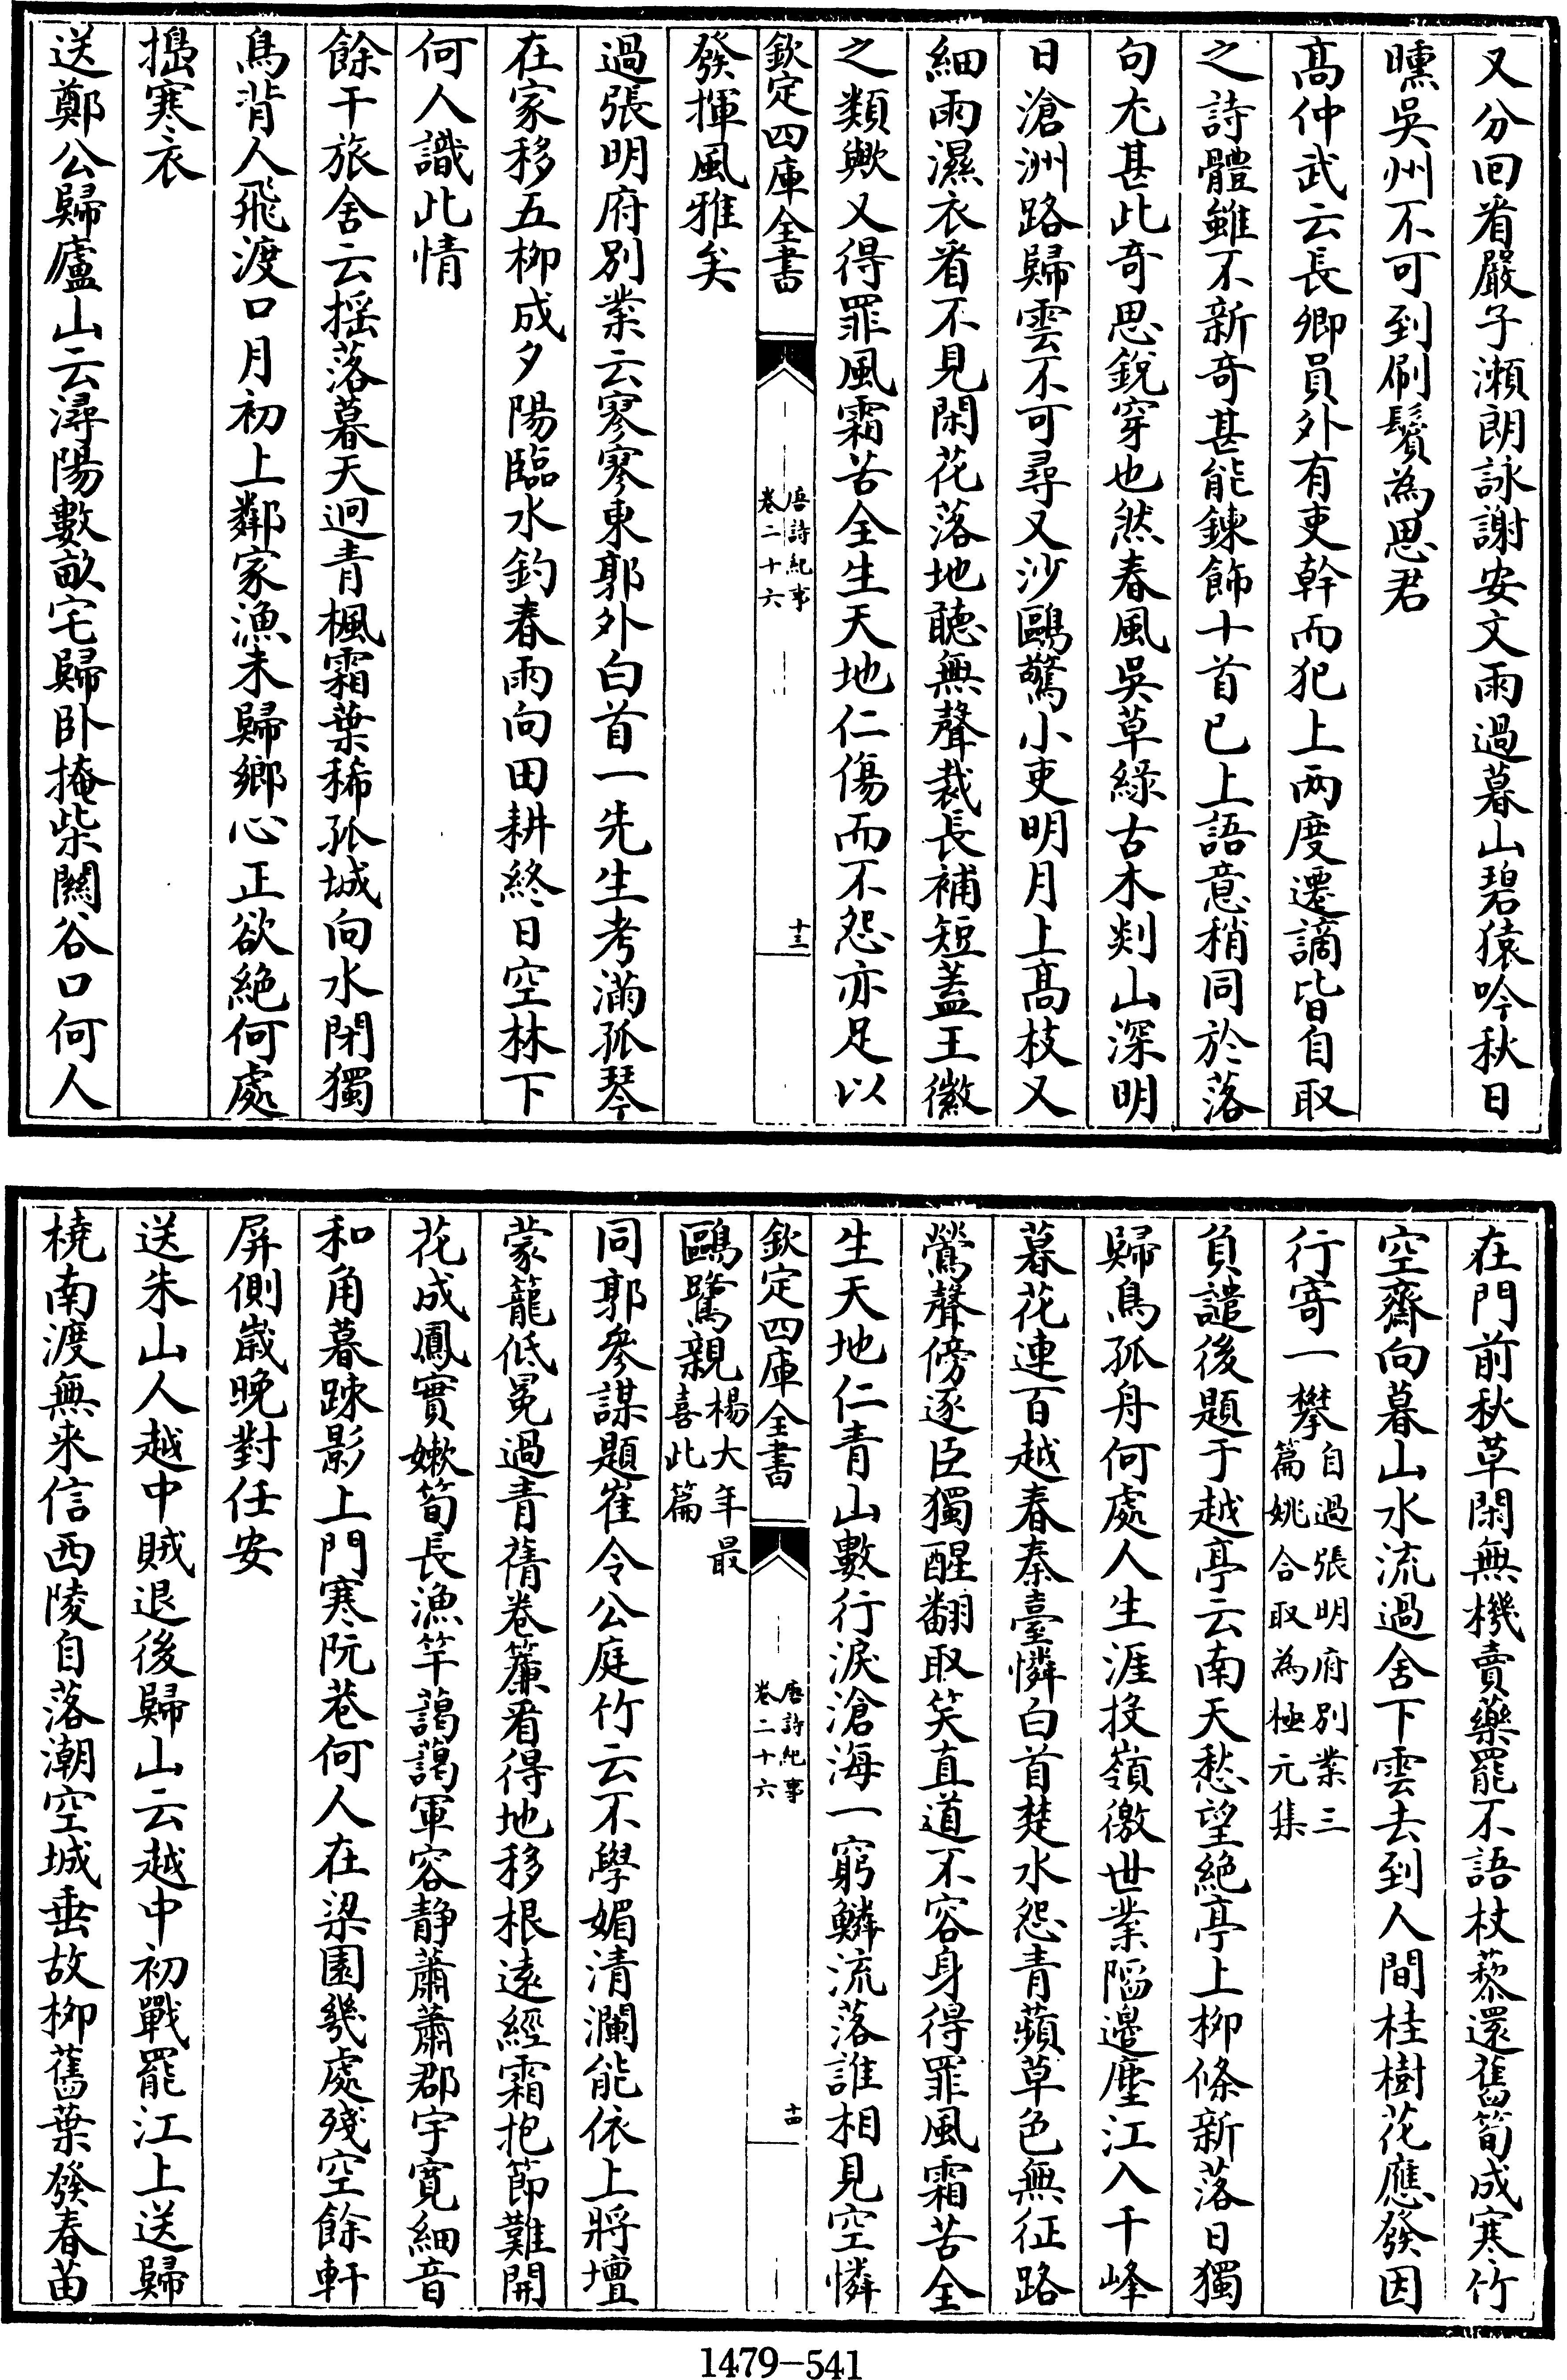 又分回看嚴子瀬朗詠謝安文雨過暮山碧猿吟秋日
曛吳州不可到刷鬢為思君
髙仲武云長卿員外有吏幹而犯上兩度遷謫皆自取
之詩體雖不新奇甚能錬飾十首已上語意稍同於落
句尤甚此奇思銳穿也然春風吳草緑古木剡山深明
日滄洲路歸雲不可尋又沙鷗驚小吏明月上髙枝又
細雨濕衣看不見閑花落地聽無聲裁長補短葢王徽
之類歟又得罪風霜苦全生天地仁傷而不怨亦足以
欽定四庫全書
唐詩紀事
卷二十六
十三
發揮風雅矣
過張明府別業云寥寥東郭外白首一先生考滿孤琴
在家移五柳成夕陽臨水釣春雨向田耕終日空林下
何人識此情
餘干旅舍云揺落暮天迥青楓霜葉稀孤城向水閉獨
鳥背人飛渡口月初上鄰家漁未歸鄉心正欲絶何處
搗寒衣
送鄭公歸廬山云潯陽數畝宅歸卧掩柴關谷口何人
在門前秋草閑無機賣藥罷不語杖藜還舊筍成寒竹
空齋向暮山水流過舍下雲去到人間桂樹花應發因
行寄一攀
自過張明府別業三
篇姚合取為極元集
負譴後題于越亭云南天愁望絶亭上柳條新落日獨
歸鳥孤舟何處人生涯投嶺徼世業陷邉塵江入千峰
暮花連百越春秦臺憐白首楚水怨青蘋草色無征路
鶯聲傍逐臣獨醒翻取笑直道不容身得罪風霜苦全
生天地仁青山數行淚滄海一窮鱗流落誰相見空憐
欽定四庫全書
唐詩紀事
卷二十六
十四
鷗鷺親
楊大年最
喜此篇
同郭參謀題崔令公庭竹云不學媚清瀾能依上將壇
蒙籠低冕過青蒨卷簾看得地移根遠經霜抱節難開
花成鳳實嫰筍長漁竿藹藹軍容静蕭蕭郡宇寛細音
和角暮踈影上門寒阮巷何人在梁園幾處殘空餘軒
屏側歲晚對任安
送朱山人越中賊退後歸山云越中初戰罷江上送歸
橈南渡無来信西陵自落潮空城垂故柳舊業發春苗
1479-541